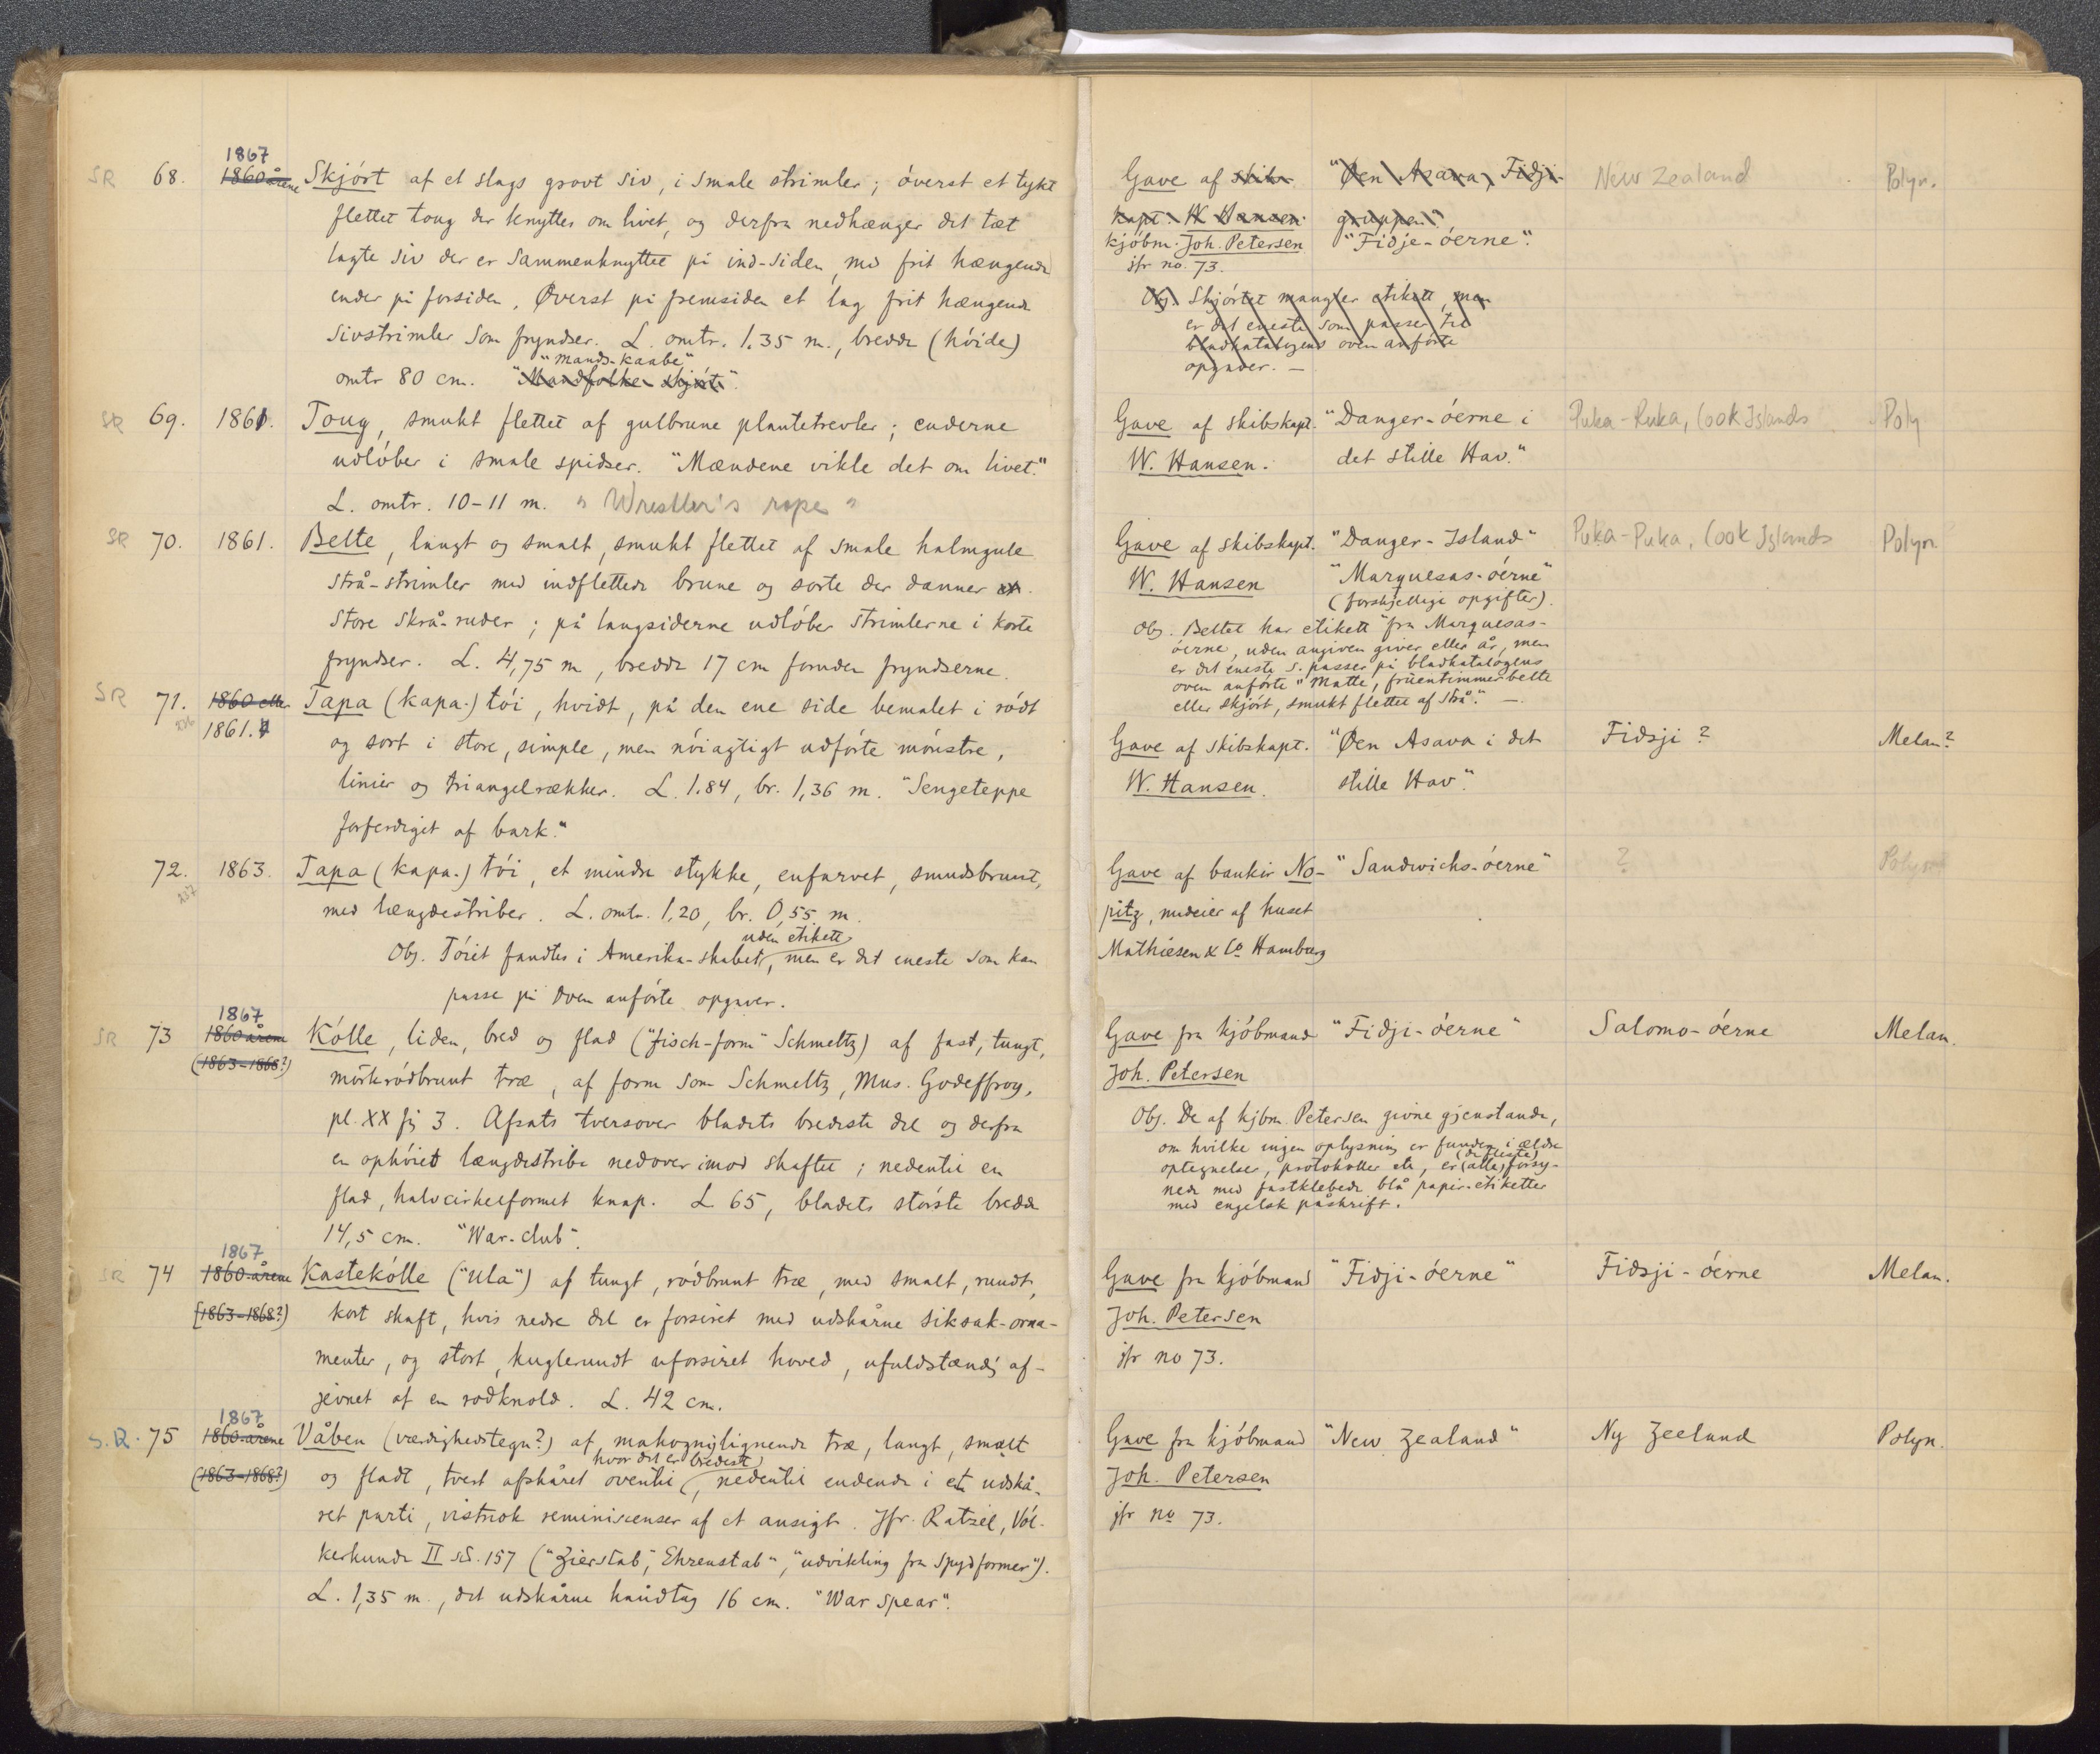 SR 68. 1867
1860 årene Skjört af et slags grovt siv, i smale strimler; överst et tykt
flettet toug der knyttes om livet, og derfra nedhænger det tæt
lagte siv der er sammenknyttet på ind-siden, med frit hængende
ender på forsiden. Øverst på fremsiden et lag frit hængende
sivstrimler som fryndser. L. omtr. 1.35 m., bredde (höide)
"Mands-kaabe"
omtr 80 cm. "Mandfolke-skjört".
Gave af skibs-
kapt. W. Hansen.
kjöbm. Joh. Petersen
jfr no. 73.
"Øen Asava, Fidji-
gruppen"
"Fidje-öerne".
Obs. Skjörtet mangler etikett, men
er det eneste som passer til
bladkatalogens oven anförte
opgaver. —
New Zealand
Polyn.
SR 69. 1861. Toug, smukt flettet af gulbrune plantetrevler; enderne
udlöber i smale spidser. "Mændene vikle det om livet."
L. omtr. 10-11 m. "Wrestler's rope"
Gave af skibskapt.
W. Hansen.
"Danger-öerne i
det stille Hav."
Puka-Puka, Cook Islands
Poly
SR 70. 1861. Belte, langt og smalt, smukt flettet af smale halmgule
strå-strimler med indflettede brune og sorte der danner
store skrå-ruder; på langsiderne udlöber strimlerne i korte
fryndser. L. 4,75 m, bredde 17 cm foruden fryndserne.
Gave af skibskapt.
W. Hansen
"Danger-Island"
"Marquesas-öerne"
(forskjellige opgifter).
Obs. Beltet har etikett "fra Marquesas-
öerne, uden angiven giver eller år, men
er det eneste s. passer på bladkatalogens
oven anförte "Matte, fruentimmerbelte
eller skjört, smukt flettet af strå". —
Puka-Puka, Cook Islands
Polyn
SR 71. 1860 eller
1861. Tapa (kapa-) töi, hvidt, på den ene side bemalet i rödt
og sort i store, simple, men nöiagtigt udförte mönstre,
linier og triangelrækker. L. 1.84, br. 1,36 m. "Sengeteppe
forferdiget af bark."
Gave af skibskapt.
W. Hansen.
"Øen Asava i det
stille Hav".
Fidsji?
Melan?
72. 237 1863. Tapa (kapa-) töi, et mindre stykke, enfarvet, smudsbrunt,
med længdestriber. L. omtr. 1,20, br. 0,55 m.
uden etikett
Obs. Töiet fandtes i Amerika-skabet, men er det eneste som kan
passe på oven anförte opgaver.
Gave af bankir No-
pitz, medeier af huset
Mathiesen & Co Hamburg
"Sandwichs-öerne"
?
Polyn
SR 73 1867
1860 årene
(1863-1868?) Kölle, liden, bred og flad ("fisch-form" Schmeltz) af fast, tungt,
mörkrödbrunt træ, af form som Schmeltz, Mus. Godeffroy,
pl. XX fig 3. Afsats tversover bladets bredeste del og derfra
en ophöiet længdestribe nedover imod skaftet; nedentil en
flad, halvcirkelformet knap. L 65, bladets störste bredde
14,5 cm. "War-club".
Gave fra kjöbmand
Joh. Petersen
"Fidji-öerne"
Salomo-öerne
Melan.
Obs. De af kjbm. Petersen givne gjenstande,
om hvilke ingen oplysning er funden i ældre
(de fleste)
optegnelser, protokoller etc, er (alle) forsy-
nede med fastklebede blå papir-etiketter
med engelsk påskrift.
SR 74 1867
1860-årene
(1863-1868?) Kastekölle ("ula") af tungt, rödbrunt træ, med smalt, rundt,
kort skaft, hvis nedre del er forsiret med udskårne siksak-orna-
menter, og stort, kuglerundt uforsiret hoved, ufuldstændig af-
jevnet af en rodknold. L. 42 cm.
Gave fra kjöbmand
Joh. Petersen
jfr no 73.
"Fidji-öerne"
Fidsji-öerne
Melan.
S.R. 75 1867
1860-årene
(1863-1868?) Våben (værdighedstegn?) af mahognylignende træ, langt, smalt
hvor det er bredest
og fladt, tvert afskåret oventil, nedentil endende i et udskå-
ret parti, vistnok reminiscenser af et ansigt. Jfr. Ratzel, Völ-
kerkunde II s. 157 ("Zierstab", Ehrenstab", "udvikling fra spydformer").
L. 1,35 m., det udskårne håndtag 16 cm. "War spear".
Gave fra kjöbmand
Joh. Petersen
jfr no 73.
"New Zealand"
Ny Zeeland
Polyn.